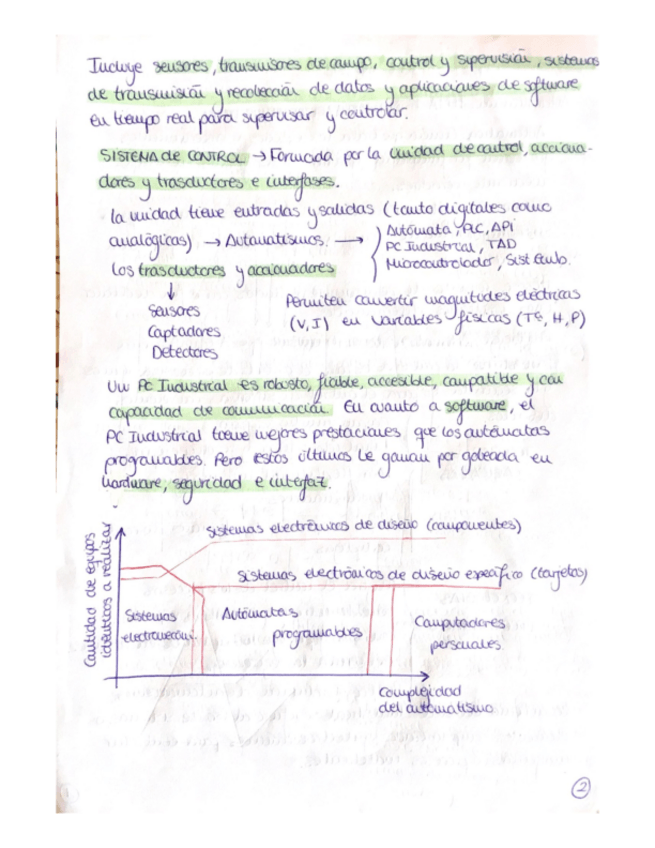 Incluye sensores, transmisores de campo, control y supervisión, sistemas
de transmisión y recolección de datos y aplicaciones de software
en tiempo real para supervisar y controlar.
SISTEMA de CONTROL → Formada por la unidad de control, acciona-
dores y trasductores e interfases.
la unidad tiene entradas y salidas (tanto digitales como
analógicas) → Automatismos. →
Autómata, PLC, API
PC Industrial, TAD
Microcontrolador, Sist Emb.
Los trasductores y accionadores
↓
Sensores
Captadores
Detectores
Permiten convertir magnitudes eléctricas
(V, I) en variables físicas (Tª, H, P)
Un PC Industrial es robusto, fiable, accesible, compatible y con
capacidad de comunicación. En cuanto a software, el
PC Industrial tiene mejores prestaciones que los autómatas
programables. Pero estos últimos le ganan por goleada en
hardware, seguridad e interfaz.
Cantidad de equipos
idénticos a realizar
Sistemas electrónicos de diseño (componentes)
Sistemas electrónicos de diseño específico (tarjetas)
Sistemas
Autómatas
programables
Computadores
personales
Complejidad
del automatismo
2